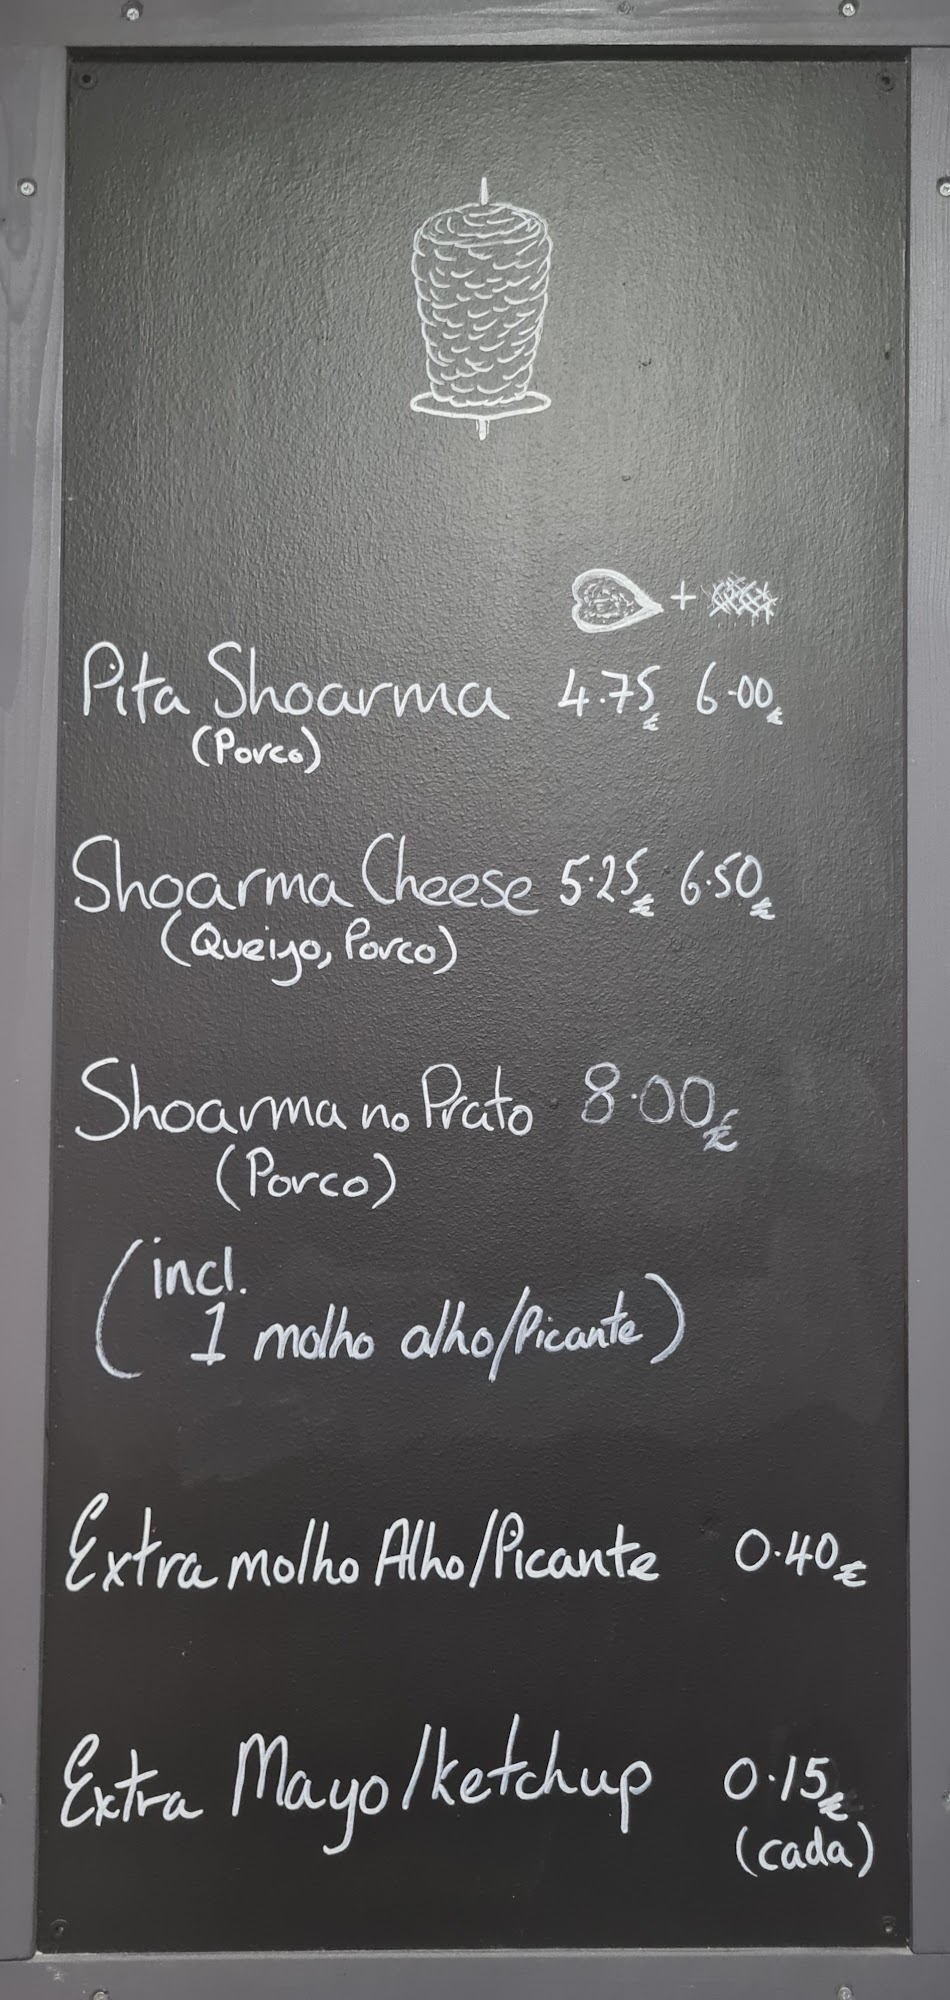 +
Pita Shoarma 4.75€ 6.00€
(Porco)
Shoarma Cheese 5.25€ 6.50€
(Queiyo, Porco)
Shoarma no Prato 8.00€
(Porco)
(incl.
1 molho alho/Picante)
Extra molho Alho/Picante 0.40€
Extra Mayo/ketchup 0.15€
(cada)